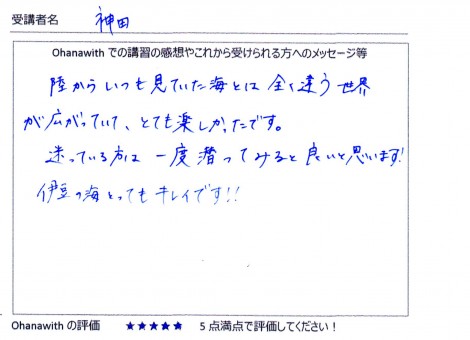 受講者名 神田
Ohanawith での講習の感想やこれから受けられる方へのメッセージ等
陸からいつも見ていた海とは全く違う世界
が広がっていて、とても楽しかったです。
迷っている方は一度潜ってみると良いと思います!
伊豆の海とってもキレイです!!
Ohanawith の評価 ★★★★★ 5点満点で評価してください！